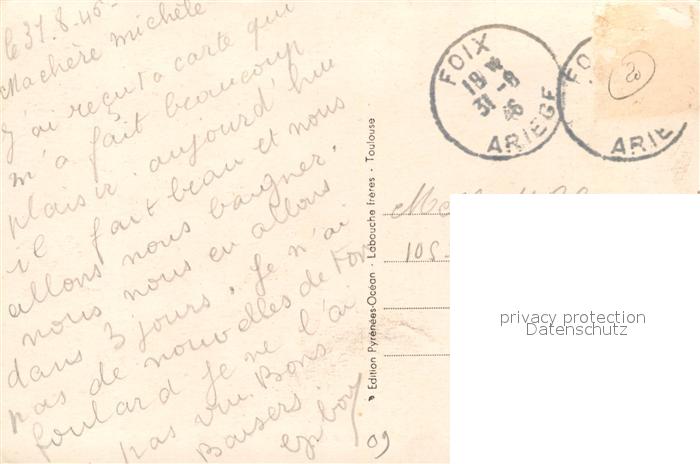 le 31.8.45
Machère michèle
J'ai reçu ta carte qui
m'a fait beaucoup
plaisir. aujourd'hui
il fait beau et nous
allons nous baigner.
nous nous en allons
dans 3 jours. Je n'ai
pas de nouvelles de
foulard je ne l'ai
pas vu. Bons
Baisers
FOIX
18
31-8
46
ARIEGE
FO
ARIE
20
Edition Pyrénées-Océan - Labouche frères - Toulouse
105
privacy protection
Datenschutz
09